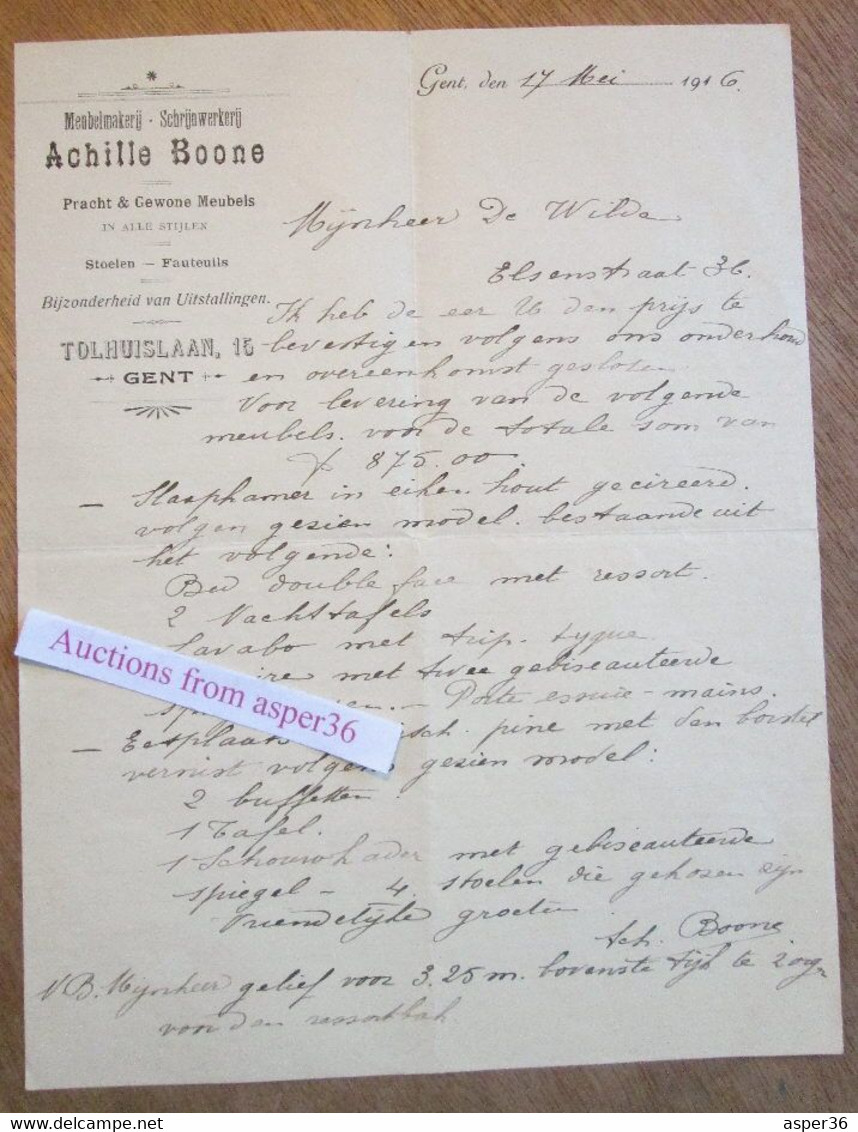 Meubelmakerij - Schrijnwerkerij
Achille Boone
Pracht & Gewone Meubels
IN ALLE STIJLEN
Stoelen — Fauteuils
Bijzonderheid van Uitstallingen.
TOLHUISLAAN, 15
GENT
Gent, den 17 Mei 1916.
Mijnheer De Wilde
Elsenstraat 36.
Ik heb de eer U den prijs te
bevestigen volgens ons onderhoud
en overeenkomst gesloten.
Voor levering van de volgende
meubels. voor de totale som van
875.00
— Slaapkamer in eiken hout gecireerd.
volgen gezien model. bestaande uit
het volgende:
Bed double face met ressort.
2 Nachttafels
Lavabo met trip-tyque
met twee gebiseauteerde
— Porte essuie-mains.
— Eetplaats pine met den borstel
vernist volgens gezien model:
2 buffetten.
1 Tafel.
1 Schouwkader met gebiseauteerde
spiegel - 4 stoelen die gekozen zijn
Vriendelijke groeten
Ach. Boone
NB. Mijnheer gelief voor 3.25 m. bovenste tijk te
voor den ressortbak
Auctions from asper36
delcampe.net
asper36